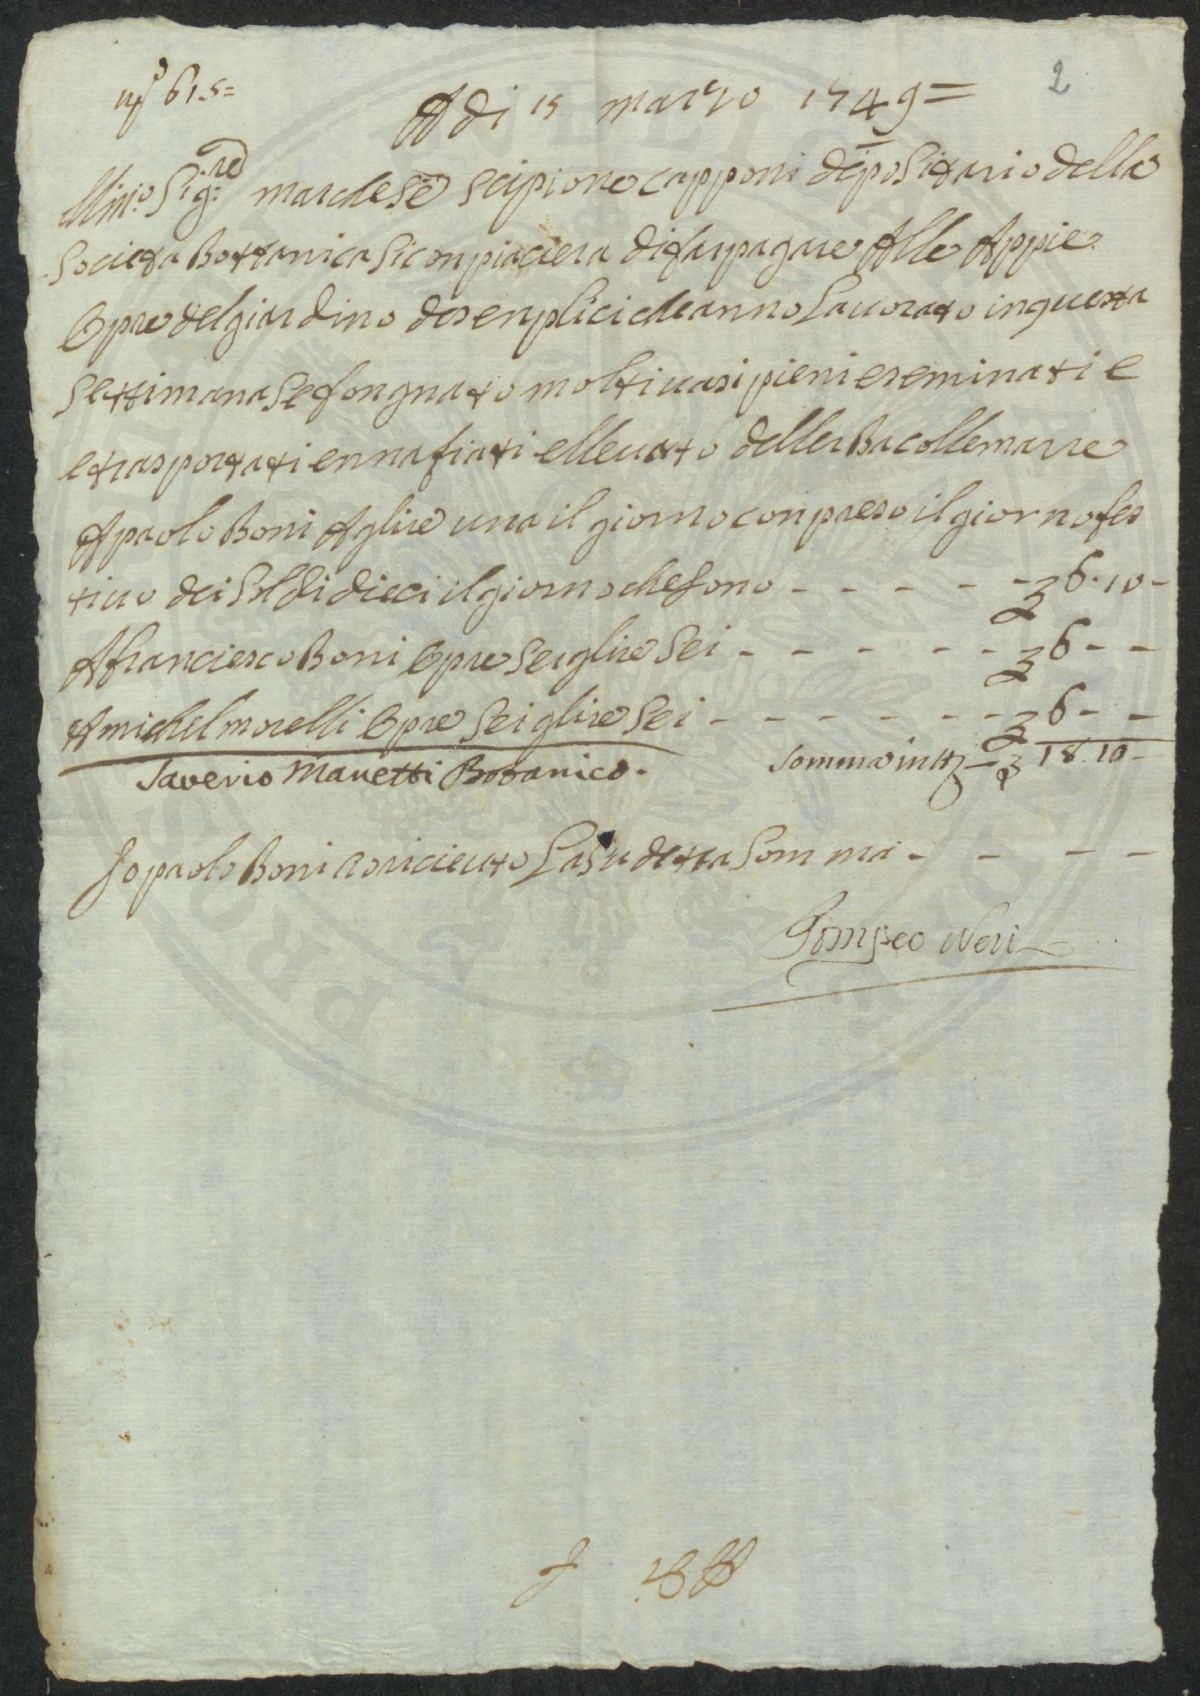 nº 615=
2
A di 15 marzo 1749=
Illmo. Sig.re marchese scipione capponi dipositario della
Societa Bottanica si conpiaciera di far pagare Alle Appie
Opre del giardino de senplici che anno Lauorato in questa
settimana se fongnato molti uasi pieni e seminati e
e trasportati ennafiati elleuato dellerba colle marre
A paolo Boni A glire una il giorno conpreso il giorno fes
tiuo dei Soldi dieci il giorno che sono - - - - - 6. 10 -
A franciesco Boni Opre sei glire Sei - - - - - - 6 - -
A michel morelli Opre Sei glire Sei - - - - - - - 6 - -
Saverio Manetti Botanico.
Somma in tt - 18. 10 -
Io paolo Boni o riceuto La su detta Somma - - - -
Pompeo Neri